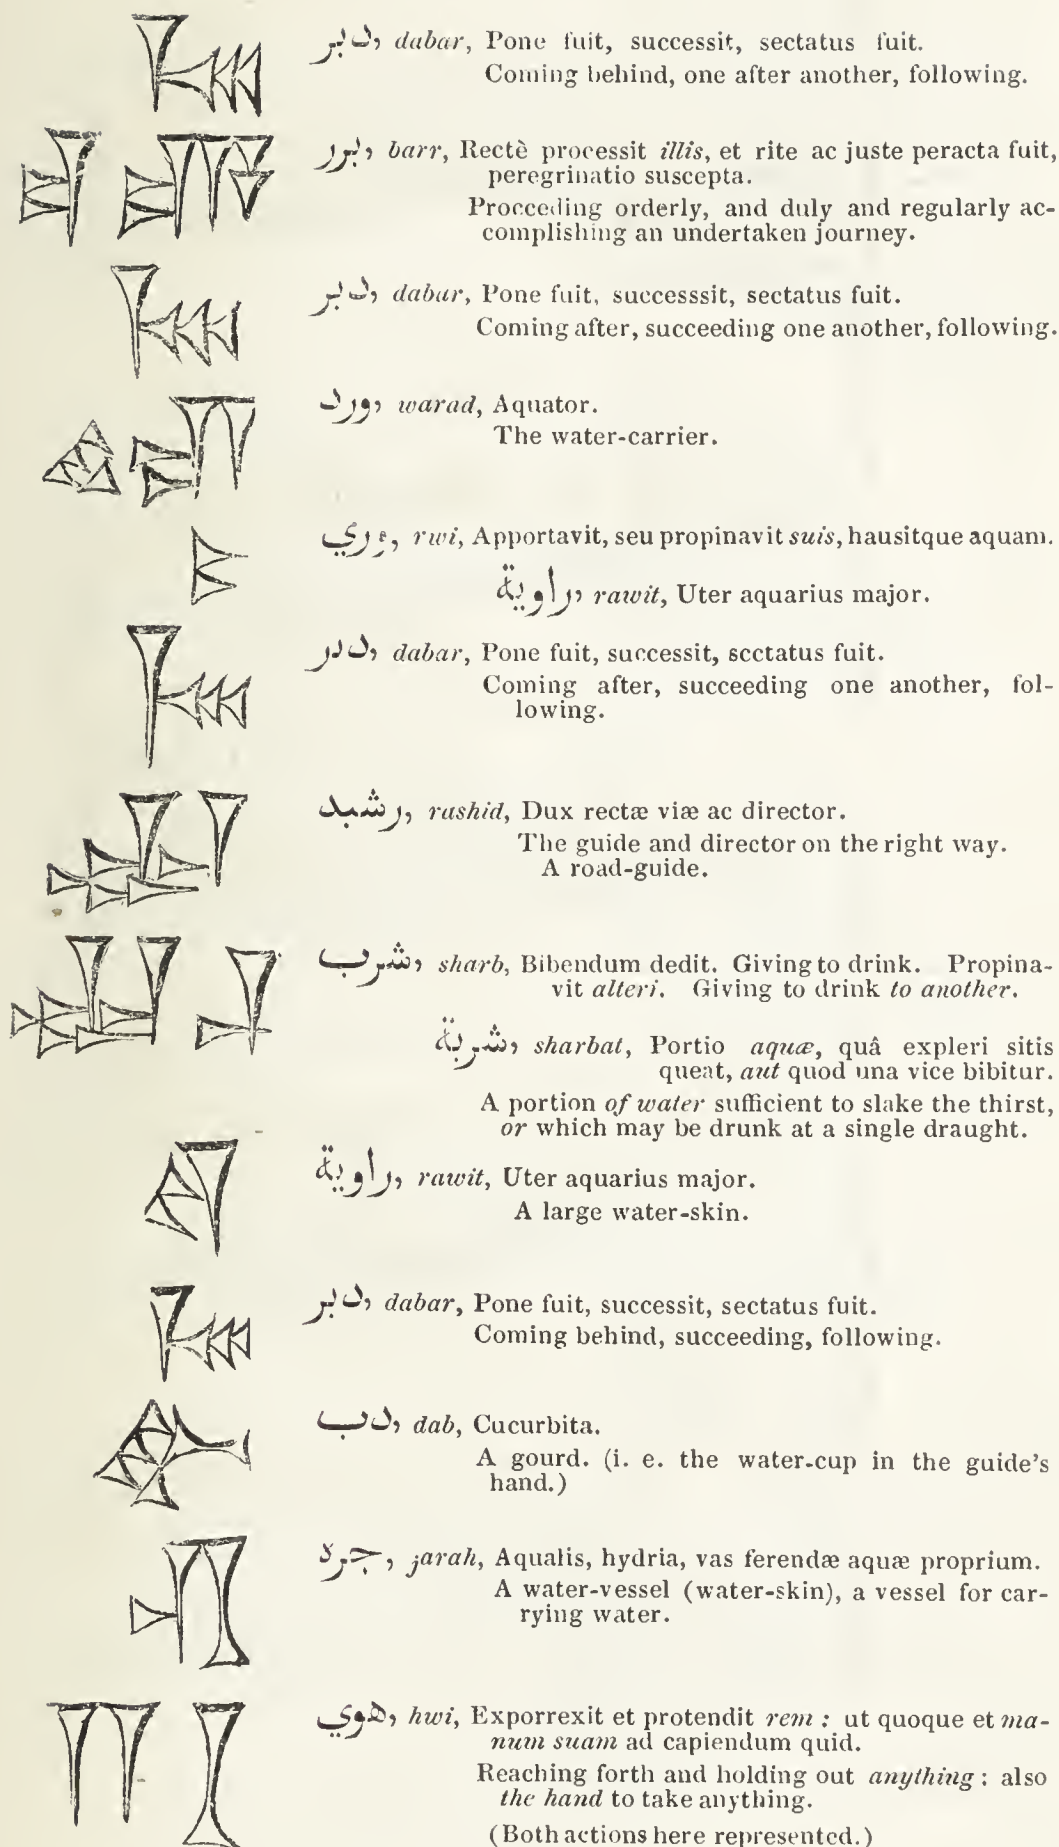 دبر, dabar, Pone fuit, successit, sectatus fuit.
Coming behind, one after another, following.
برر, barr, Rectè processit illis, et rite ac juste peracta fuit,
peregrinatio suscepta.
Proceeding orderly, and duly and regularly ac-
complishing an undertaken journey.
دبر, dabar, Pone fuit, successsit, sectatus fuit.
Coming after, succeeding one another, following.
ورد, warad, Aquator.
The water-carrier.
rwi, Apportavit, seu propinavit suis, hausitque aquam.
راوية, rawit, Uter aquarius major.
dabar, Pone fuit, successit, sectatus fuit.
Coming after, succeeding one another, fol-
lowing.
رشيد, rashid, Dux rectæ viæ ac director.
The guide and director on the right way.
A road-guide.
شرب, sharb, Bibendum dedit. Giving to drink. Propina-
vit alteri. Giving to drink to another.
شربة, sharbat, Portio aquæ, quâ expleri sitis
queat, aut quod una vice bibitur.
A portion of water sufficient to slake the thirst,
or which may be drunk at a single draught.
راوية, rawit, Uter aquarius major.
A large water-skin.
دبر, dabar, Pone fuit, successit, sectatus fuit.
Coming behind, succeeding, following.
دب, dab, Cucurbita.
A gourd. (i. e. the water-cup in the guide's
hand.)
جره, jarah, Aqualis, hydria, vas ferendæ aquæ proprium.
A water-vessel (water-skin), a vessel for car-
rying water.
هوي, hwi, Exporrexit et protendit rem: ut quoque et ma-
num suam ad capiendum quid.
Reaching forth and holding out anything: also
the hand to take anything.
(Both actions here represented.)